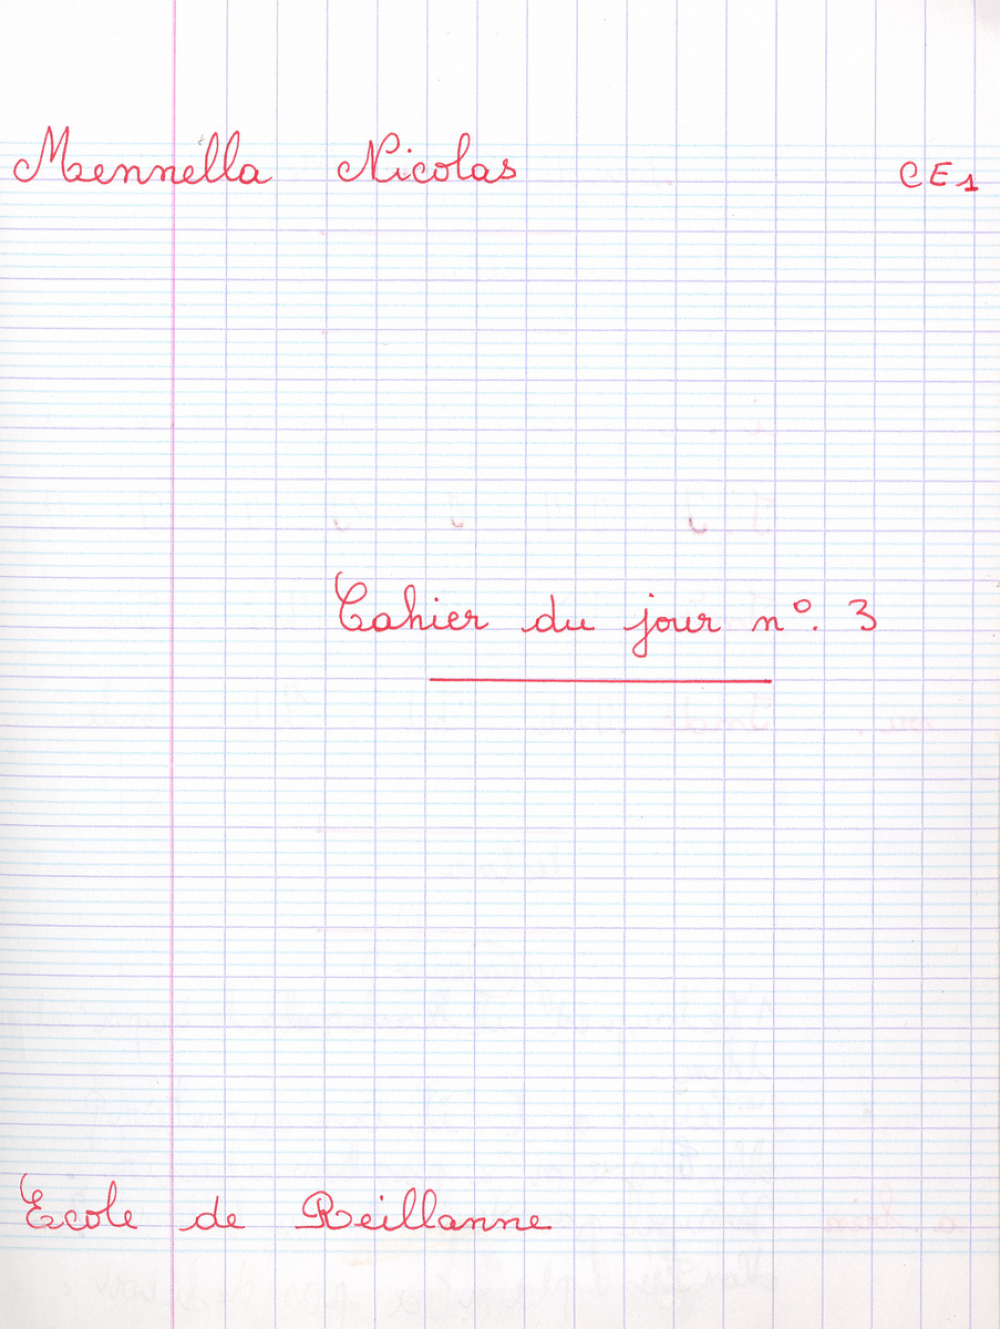 Mennella Nicolas CE1
Cahier du jour n°. 3
Ecole de Reillanne